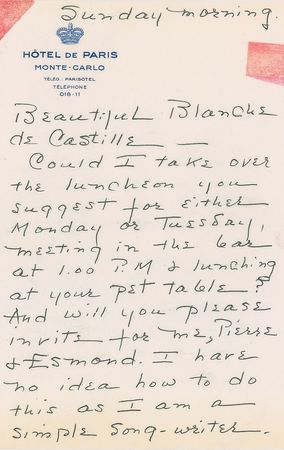 Sunday morning.
HÔTEL DE PARIS
MONTE-CARLO
TÉLÉG. PARISOTEL
TÉLÉPHONE
018-11
Beautiful Blanche
de Castille —
Could I take over
the luncheon you
suggest for either
Monday or Tuesday,
meeting in the bar
at 1.00 P.M & lunching
at your pet table?
And will you please
invite for me, Pierre
& Esmond. I have
no idea how to do
this as I am a
simple song-writer.